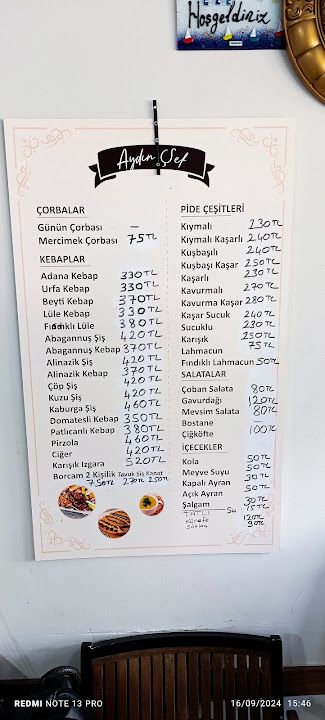 Hoşgeldiniz
Aydın Şef
ÇORBALAR
Günün Çorbası —
Mercimek Çorbası 75 TL
KEBAPLAR
Adana Kebap 330 TL
Urfa Kebap 330 TL
Beyti Kebap 370 TL
Lüle Kebap 330 TL
Fıstıklı Lüle 380 TL
Abagannuş Şiş 420 TL
Abagannuş Kebap 370 TL
Alinazik Şiş 420 TL
Alinazik Kebap 370 TL
Çöp Şiş 420 TL
Kuzu Şiş 420 TL
Kaburga Şiş 460 TL
Domatesli Kebap 350 TL
Patlıcanlı Kebap 380 TL
Pirzola 460 TL
Ciğer 420 TL
Karışık Izgara 520 TL
Borcam 2 Kişilik Tavuk Şiş Kanat
750 TL 270 TL 250 TL
PİDE ÇEŞİTLERİ
Kıymalı 230 TL
Kıymalı Kaşarlı 240 TL
Kuşbaşılı 240 TL
Kuşbaşı Kaşar 250 TL
Kaşarlı 230 TL
Kavurmalı 270 TL
Kavurma Kaşar 280 TL
Kaşar Sucuk 240 TL
Sucuklu 230 TL
Karışık 250 TL
Lahmacun 75 TL
Fındıklı Lahmacun 50 TL
SALATALAR
Çoban Salata 80 TL
Gavurdağı 120 TL
Mevsim Salata 80 TL
Bostane
Çiğköfte 100 TL
İÇECEKLER
Kola 50 TL
Meyve Suyu 50 TL
Kapalı Ayran 30 TL
Açık Ayran 50 TL
Şalgam 30 TL
Su 15 TL
TATLI
Künefe 120 TL
Sütlaç 90 TL
REDMI NOTE 13 PRO
16/09/2024 15:46